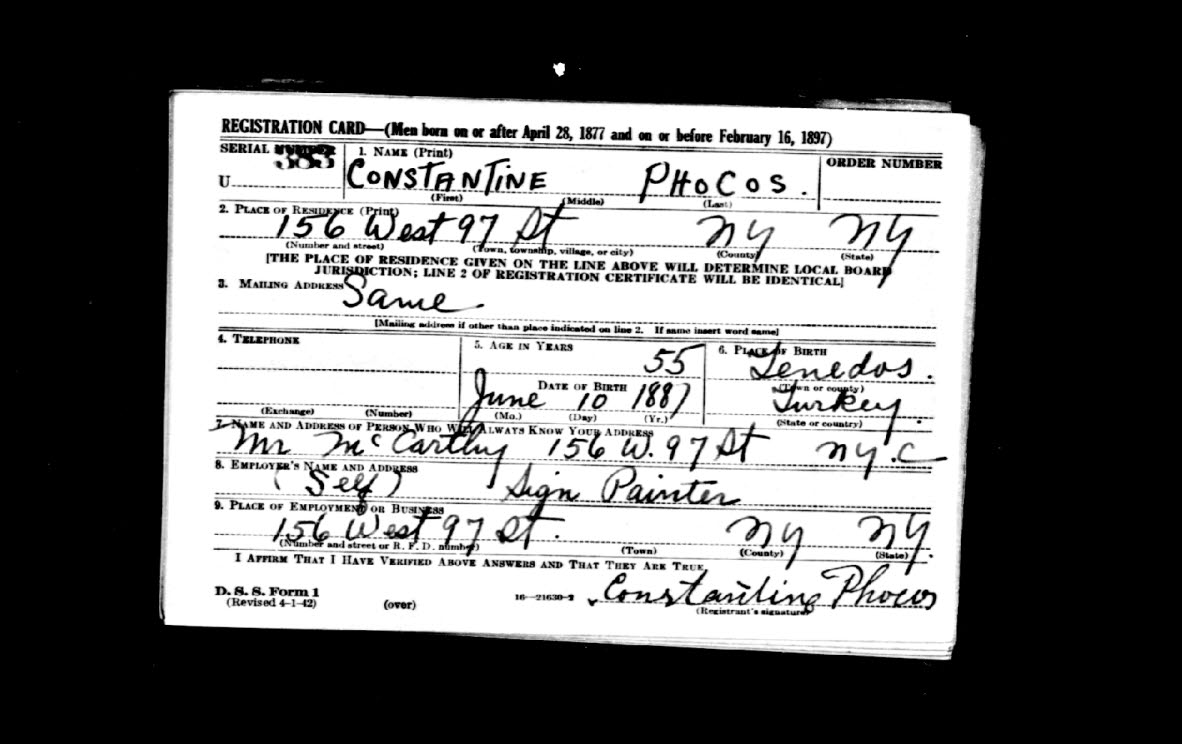 REGISTRATION CARD—(Men born on or after April 28, 1877 and on or before February 16, 1897)
SERIAL NUMBER 1. NAME (Print) ORDER NUMBER
U 385 CONSTANTINE PHOCOS.
(First) (Middle) (Last)
2. PLACE OF RESIDENCE (Print)
156 West 97 St NY NY
(Number and street) (Town, township, village, or city) (County) (State)
[THE PLACE OF RESIDENCE GIVEN ON THE LINE ABOVE WILL DETERMINE LOCAL BOARD
JURISDICTION; LINE 2 OF REGISTRATION CERTIFICATE WILL BE IDENTICAL]
3. MAILING ADDRESS
Same
[Mailing address if other than place indicated on line 2. If same insert word same]
4. TELEPHONE 5. AGE IN YEARS 6. PLACE OF BIRTH
55 Tenedos.
DATE OF BIRTH (Town or county)
June 10 1887 Turkey.
(Exchange) (Number) (Mo.) (Day) (Yr.) (State or country)
7. NAME AND ADDRESS OF PERSON WHO WILL ALWAYS KNOW YOUR ADDRESS
Mr McCarthy 156 W. 97 St NY.C
8. EMPLOYER'S NAME AND ADDRESS
(Self) Sign Painter
9. PLACE OF EMPLOYMENT OR BUSINESS
156 West 97 St. NY NY.
(Number and street or R. F. D. number) (Town) (County) (State)
I AFFIRM THAT I HAVE VERIFIED ABOVE ANSWERS AND THAT THEY ARE TRUE.
D. S. S. Form 1
(Revised 4-1-42) (over) 16—21630-2 Constantine Phocos
(Registrant's signature)